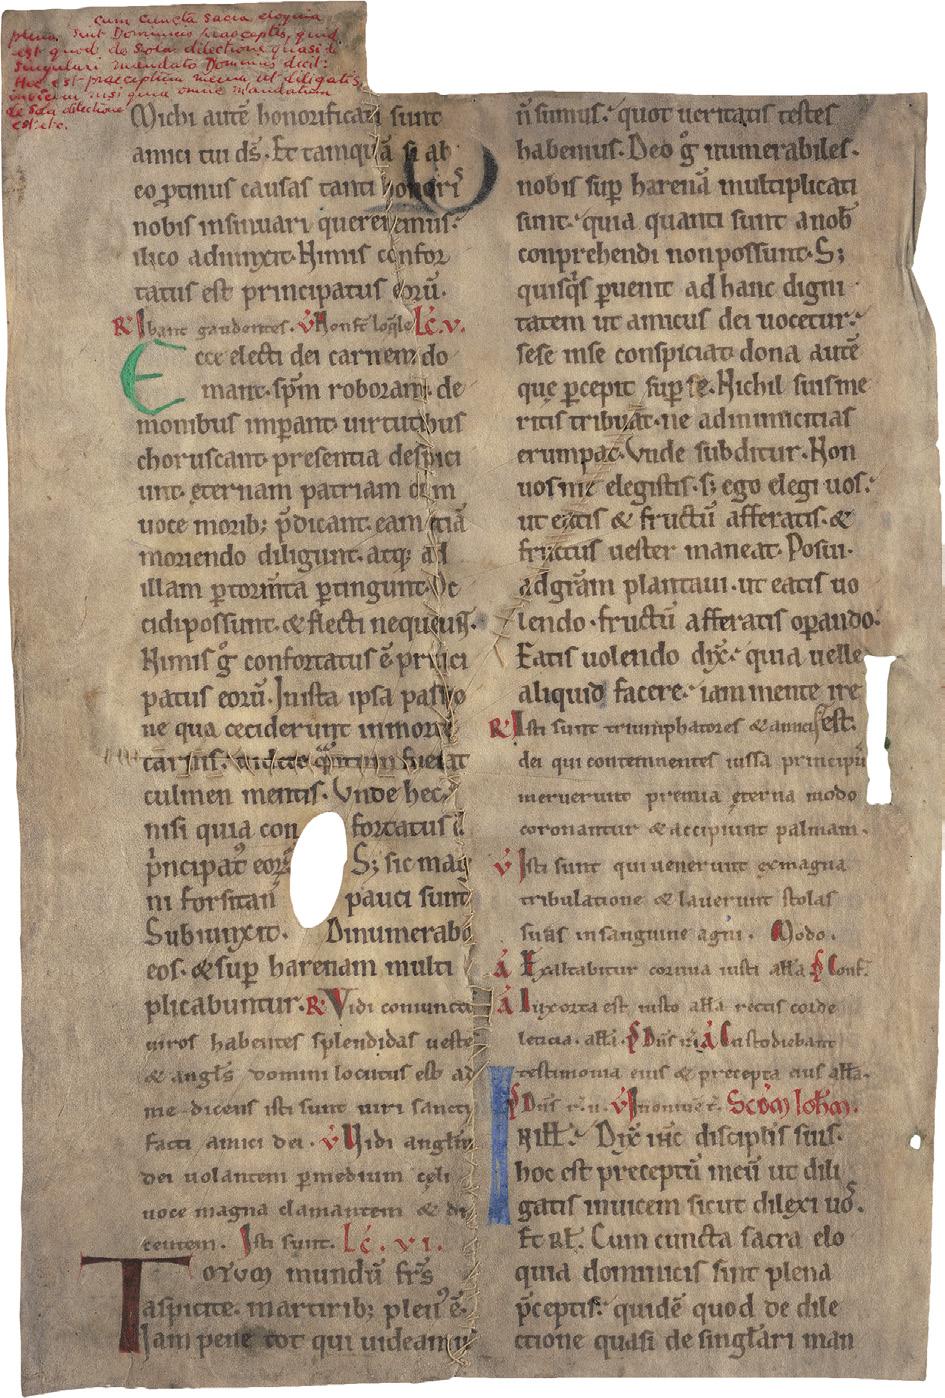 cum cuncta sacra eloquia
plena sint Dominicis praeceptis, quid
est quod de sola dilectione quasi de
singulari mandato Dominus dicit:
Hoc est praeceptum meum ut diligatis
invicem nisi quia omne mandatum
de sola dilectione
est etc.
Michi autē honorificati sunt
amici tui ds̄. Et tamquā si ab
eo ꝓtinus causas tanti honoris
nobis insinuari quereremus.
ilico adiunxit. Nimis confor
tatus est principatus eorū.
R Ibant gaudentes. V Lc̄. v.
Ecce electi dei carnem do
mant. sp̄m roborant. de
monibus imꝑant. uirtutibus
choruscant. presentia despici
unt. ęternam patriam
uoce morib; p̄dicant. eam etiā
moriendo diligunt. atq; ad
illam ꝑ torm̄ta ꝑtingunt. Oc
cidi possunt. & flecti nequeunt.
Nimis g̊ confortatus ē princi
patus eorū. In ista ipsa passio
ne qua ceciderunt in morte
carnis. uidete fuerat
culmen mentis. Vnde hec
nisi quia con fortatus ē
principat᾿ eor S; sic mag
ni forsitan pauci sunt
Subiunxit. Dinumerabo
eos. & suꝑ harenam multi
plicabuntur. R Vidi coniuncta
uiros habentes splendidas ueste
& angl̄s domini locutus est ad
me dicens isti sunt uiri sancti
facti amici dei. V Vidi anglm̄
dei uolantem ꝑ medium cęli
uoce magna clamantem & di
centem. Isti sunt. Lc̄. vi.
Totum mundū frs̄
aspicite. martirib; plen᾿ ē.
Iam pene tot qui uideam᾿
n̄ sumus. quot ueritatis testes
habemus. Deo g̊ innumerabiles.
nobis suꝑ harenā multiplicati
sunt. quia quanti sunt a nob̄
conprehendi non possunt. S;
quisq̇s ꝑuenit ad hanc digni
tatem ut amicus dei uocetur.
sese in se conspiciat. dona autē
que ꝑcepit suꝑ se. Nichil suis me
ritis tribuat. ne ad inimicitias
erumpat. Vnde subditur. Non
uos me elegistis. s; ego elegi uos.
ut eatis & fructū afferatis. &
fructus uester maneat. Posui.
ad grām plantaui. ut eatis uo
lendo. fructū afferatis oꝑando.
Eatis uolendo dix̄. quia uelle
aliquid facere. iam mente ire
R Isti sunt triumphatores & amici est.
dei qui contemnentes iussa principū
meruerunt premia ęterna modo
coronantur & accipiunt palmam.
V Isti sunt qui uenerunt ex magna
tribulatione & lauerunt stolas
suas in sanguine agni. Modo.
A Exaltabitur cornua iusti all̄a P Conf.
A Lux orta est iusto all̄a rectis corde
leticia. all̄. P Dn̄s A Custodiebant
testimonia eius & precepta eius all̄a.
P Dn̄s V Scd̄m Ioh̄m.
In ill̄. Dix̄ ih̄c discipl̄is suis.
hoc est preceptū meū ut dili
gatis inuicem sicut dilexi uos.
Et rl̄. Cum cuncta sacra elo
quia dominicis sint plena
p̄ceptis. quid ē quod de dile
ctione quasi de singl̄ari man